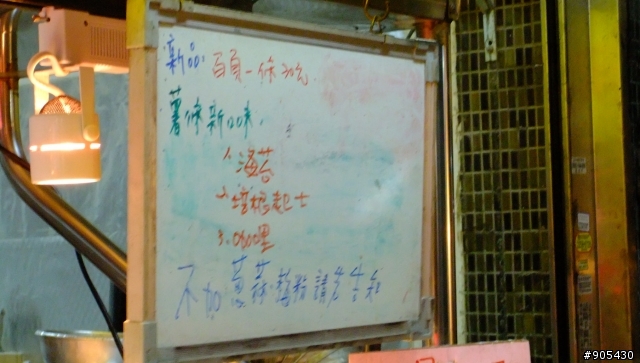 新品:百頁一條30元
薯條新口味.
1.海苔
2.培根起士
3.咖哩
不加蔥蒜辣粉請先告知
#905430